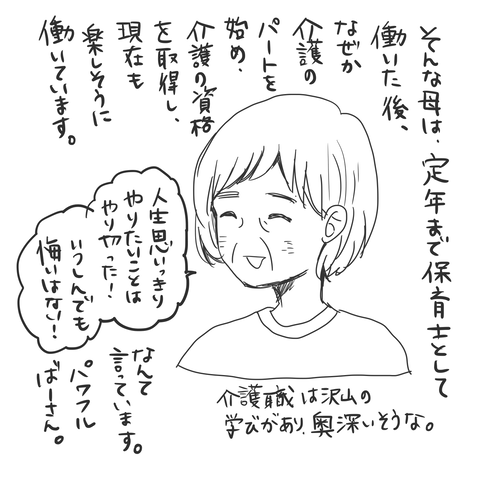 そんな母は、定年まで保育士として
働いた後、
なぜか
介護の
パートを
始め、
介護の資格
を取得し、
現在も
楽しそうに
働いています。
人生思いっきり
やりたいことは
やり切った！
いつしんでも
悔いはない！
なんて
言っています。
パワフル
ばーさん。
介護職は沢山の
学びがあり、奥深いそうな。